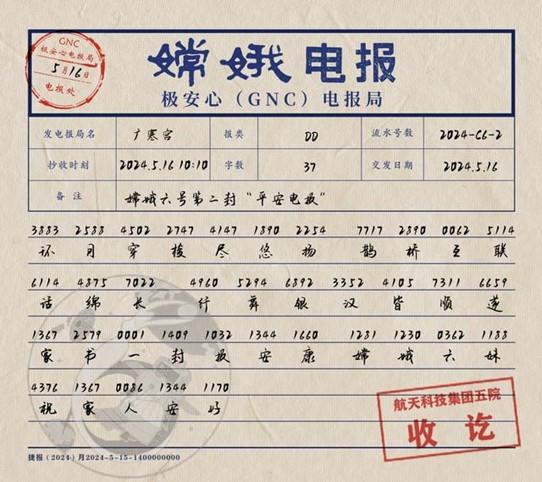 GNC
极安心电报局
5月16日
电报处
嫦娥电报
极安心（GNC）电报局
发电报局名 广寒宫 报类 DD 流水号数 2024-C6-2
抄收时刻 2024.5.16 10:10 字数 37 交发日期 2024.5.16
备注 嫦娥六号第二封“平安电报”
3883 2588 4502 2747 4147 1890 2254 7717 2890 0062 5114
环月穿梭尽悠扬 鹊桥互联
6114 4875 7022 4960 5294 6892 3352 4105 7311 6659
话绵长 纤舞银汉皆顺遂
1367 2579 0001 1409 1032 1344 1660 1281 1230 0362 1188
家书一封报安康 嫦娥六妹
4376 1367 0086 1344 1170
祝家人安好
航天科技集团五院
收讫
捷报（2024）月2024-5-15-1400000000